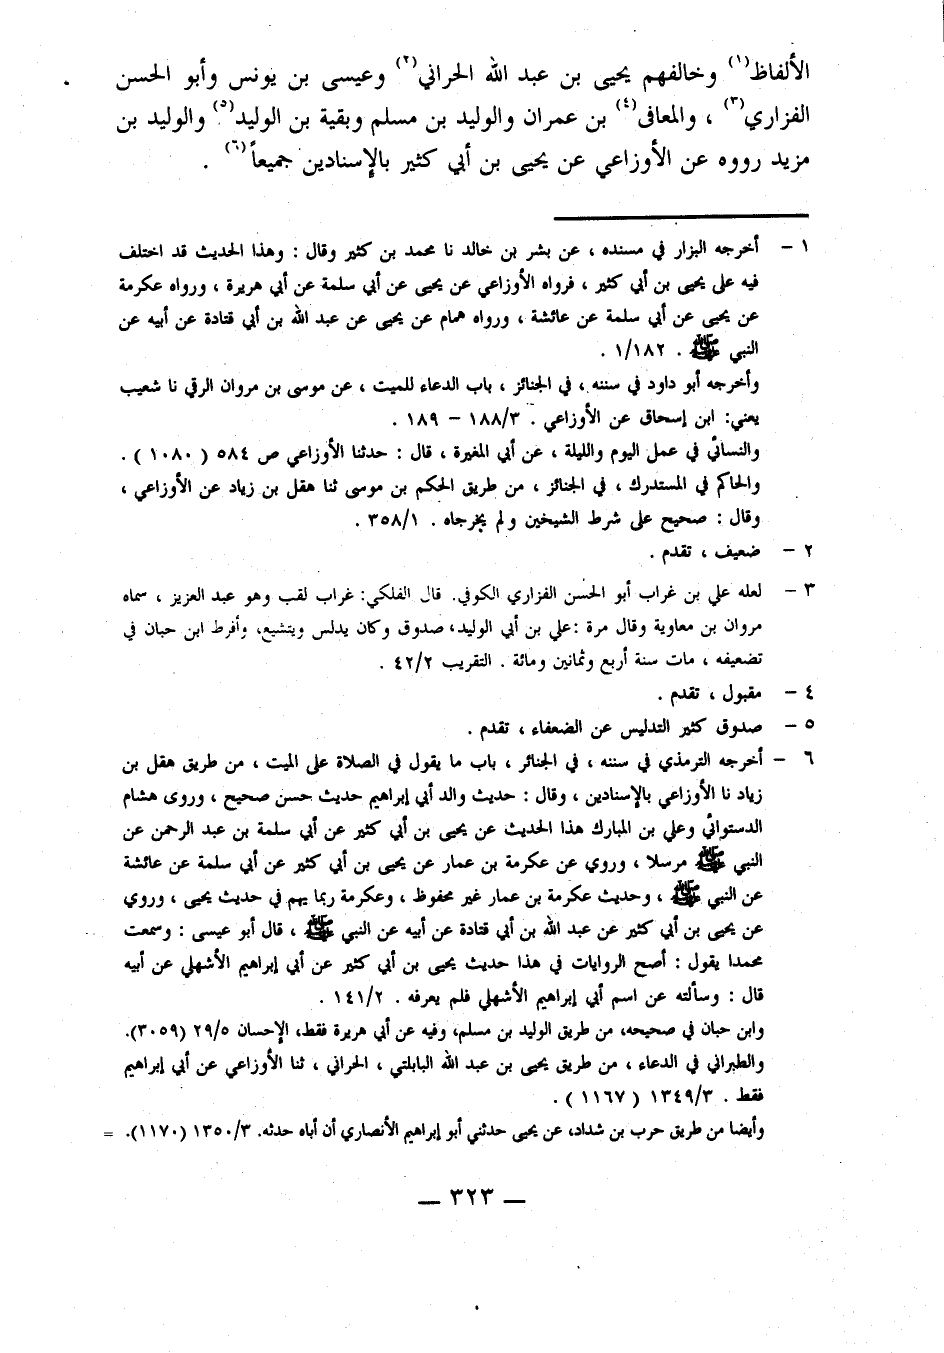 الألفاظ(١) وخالفهم يحيى بن عبد الله الحراني(٢) وعيسى بن يونس وأبو الحسن
الفزاري(٣) ، والمعافى(٤) بن عمران والوليد بن مسلم وبقية بن الوليد(٥) والوليد بن
مزيد رووه عن الأوزاعي عن يحيى بن أبي كثير بالإسنادين جميعاً(٦) .
١ – أخرجه البزار في مسنده ، عن بشر بن خالد نا محمد بن كثير وقال : وهذا الحديث قد اختلف
فيه على يحيى بن أبي كثير ، فرواه الأوزاعي عن يحيى عن أبي سلمة عن أبي هريرة ، ورواه عكرمة
عن يحيى عن أبي سلمة عن عائشة ، ورواه همام عن يحيى عن عبد الله بن أبي قتادة عن أبيه عن
النبي ﷺ . ١/١٨٢ .
وأخرجه أبو داود في سننه ، في الجنائز ، باب الدعاء للميت ، عن موسى بن مروان الرقي نا شعيب
يعني: ابن إسحاق عن الأوزاعي . ١٨٨/٣ – ١٨٩ .
والنسائي في عمل اليوم والليلة ، عن أبي المغيرة ، قال : حدثنا الأوزاعي ص ٥٨٤ ( ١٠٨٠ ) .
والحاكم في المستدرك ، في الجنائز ، من طريق الحكم بن موسى ثنا هقل بن زياد عن الأوزاعي ،
وقال : صحيح على شرط الشيخين ولم يخرجاه . ٣٥٨/١ .
٢ – ضعيف ، تقدم .
٣ – لعله علي بن غراب أبو الحسن الفزاري الكوفي. قال الفلكي: غراب لقب وهو عبد العزيز ، سماه
مروان بن معاوية وقال مرة :علي بن أبي الوليد، صدوق وكان يدلس ويتشيع، وأفرط ابن حبان في
تضعيفه ، مات سنة أربع وثمانين ومائة . التقريب ٤٢/٢ .
٤ – مقبول ، تقدم .
٥ – صدوق كثير التدليس عن الضعفاء ، تقدم .
٦ – أخرجه الترمذي في سننه ، في الجنائز ، باب ما يقول في الصلاة على الميت ، من طريق هقل بن
زياد نا الأوزاعي بالإسنادين ، وقال : حديث والد أبي إبراهيم حديث حسن صحيح ، وروى هشام
الدستوائي وعلي بن المبارك هذا الحديث عن يحيى بن أبي كثير عن أبي سلمة بن عبد الرحمن عن
النبي ﷺ مرسلا ، وروي عن عكرمة بن عمار عن يحيى بن أبي كثير عن أبي سلمة عن عائشة
عن النبي ﷺ ، وحديث عكرمة بن عمار غير محفوظ ، وعكرمة ربما يهم في حديث يحيى ، وروي
عن يحيى بن أبي كثير عن عبد الله بن أبي قتادة عن أبيه عن النبي ﷺ ، قال أبو عيسى : وسمعت
محمدا يقول : أصح الروايات في هذا حديث يحيى بن أبي كثير عن أبي إبراهيم الأشهلي عن أبيه
قال : وسألته عن اسم أبي إبراهيم الأشهلي فلم يعرفه . ١٤١/٢ .
وابن حبان في صحيحه، من طريق الوليد بن مسلم، وفيه عن أبي هريرة فقط، الإحسان ٢٩/٥ (٣٠٥٩).
والطبراني في الدعاء ، من طريق يحيى بن عبد الله البابلتي ، الحراني ، ثنا الأوزاعي عن أبي إبراهيم
فقط . ١٣٤٩/٣ ( ١١٦٧ ) .
وأيضا من طريق حرب بن شداد، عن يحيى حدثني أبو إبراهيم الأنصاري أن أباه حدثه. ١٣٥٠/٣ (١١٧٠). =
— ٣٢٣ —